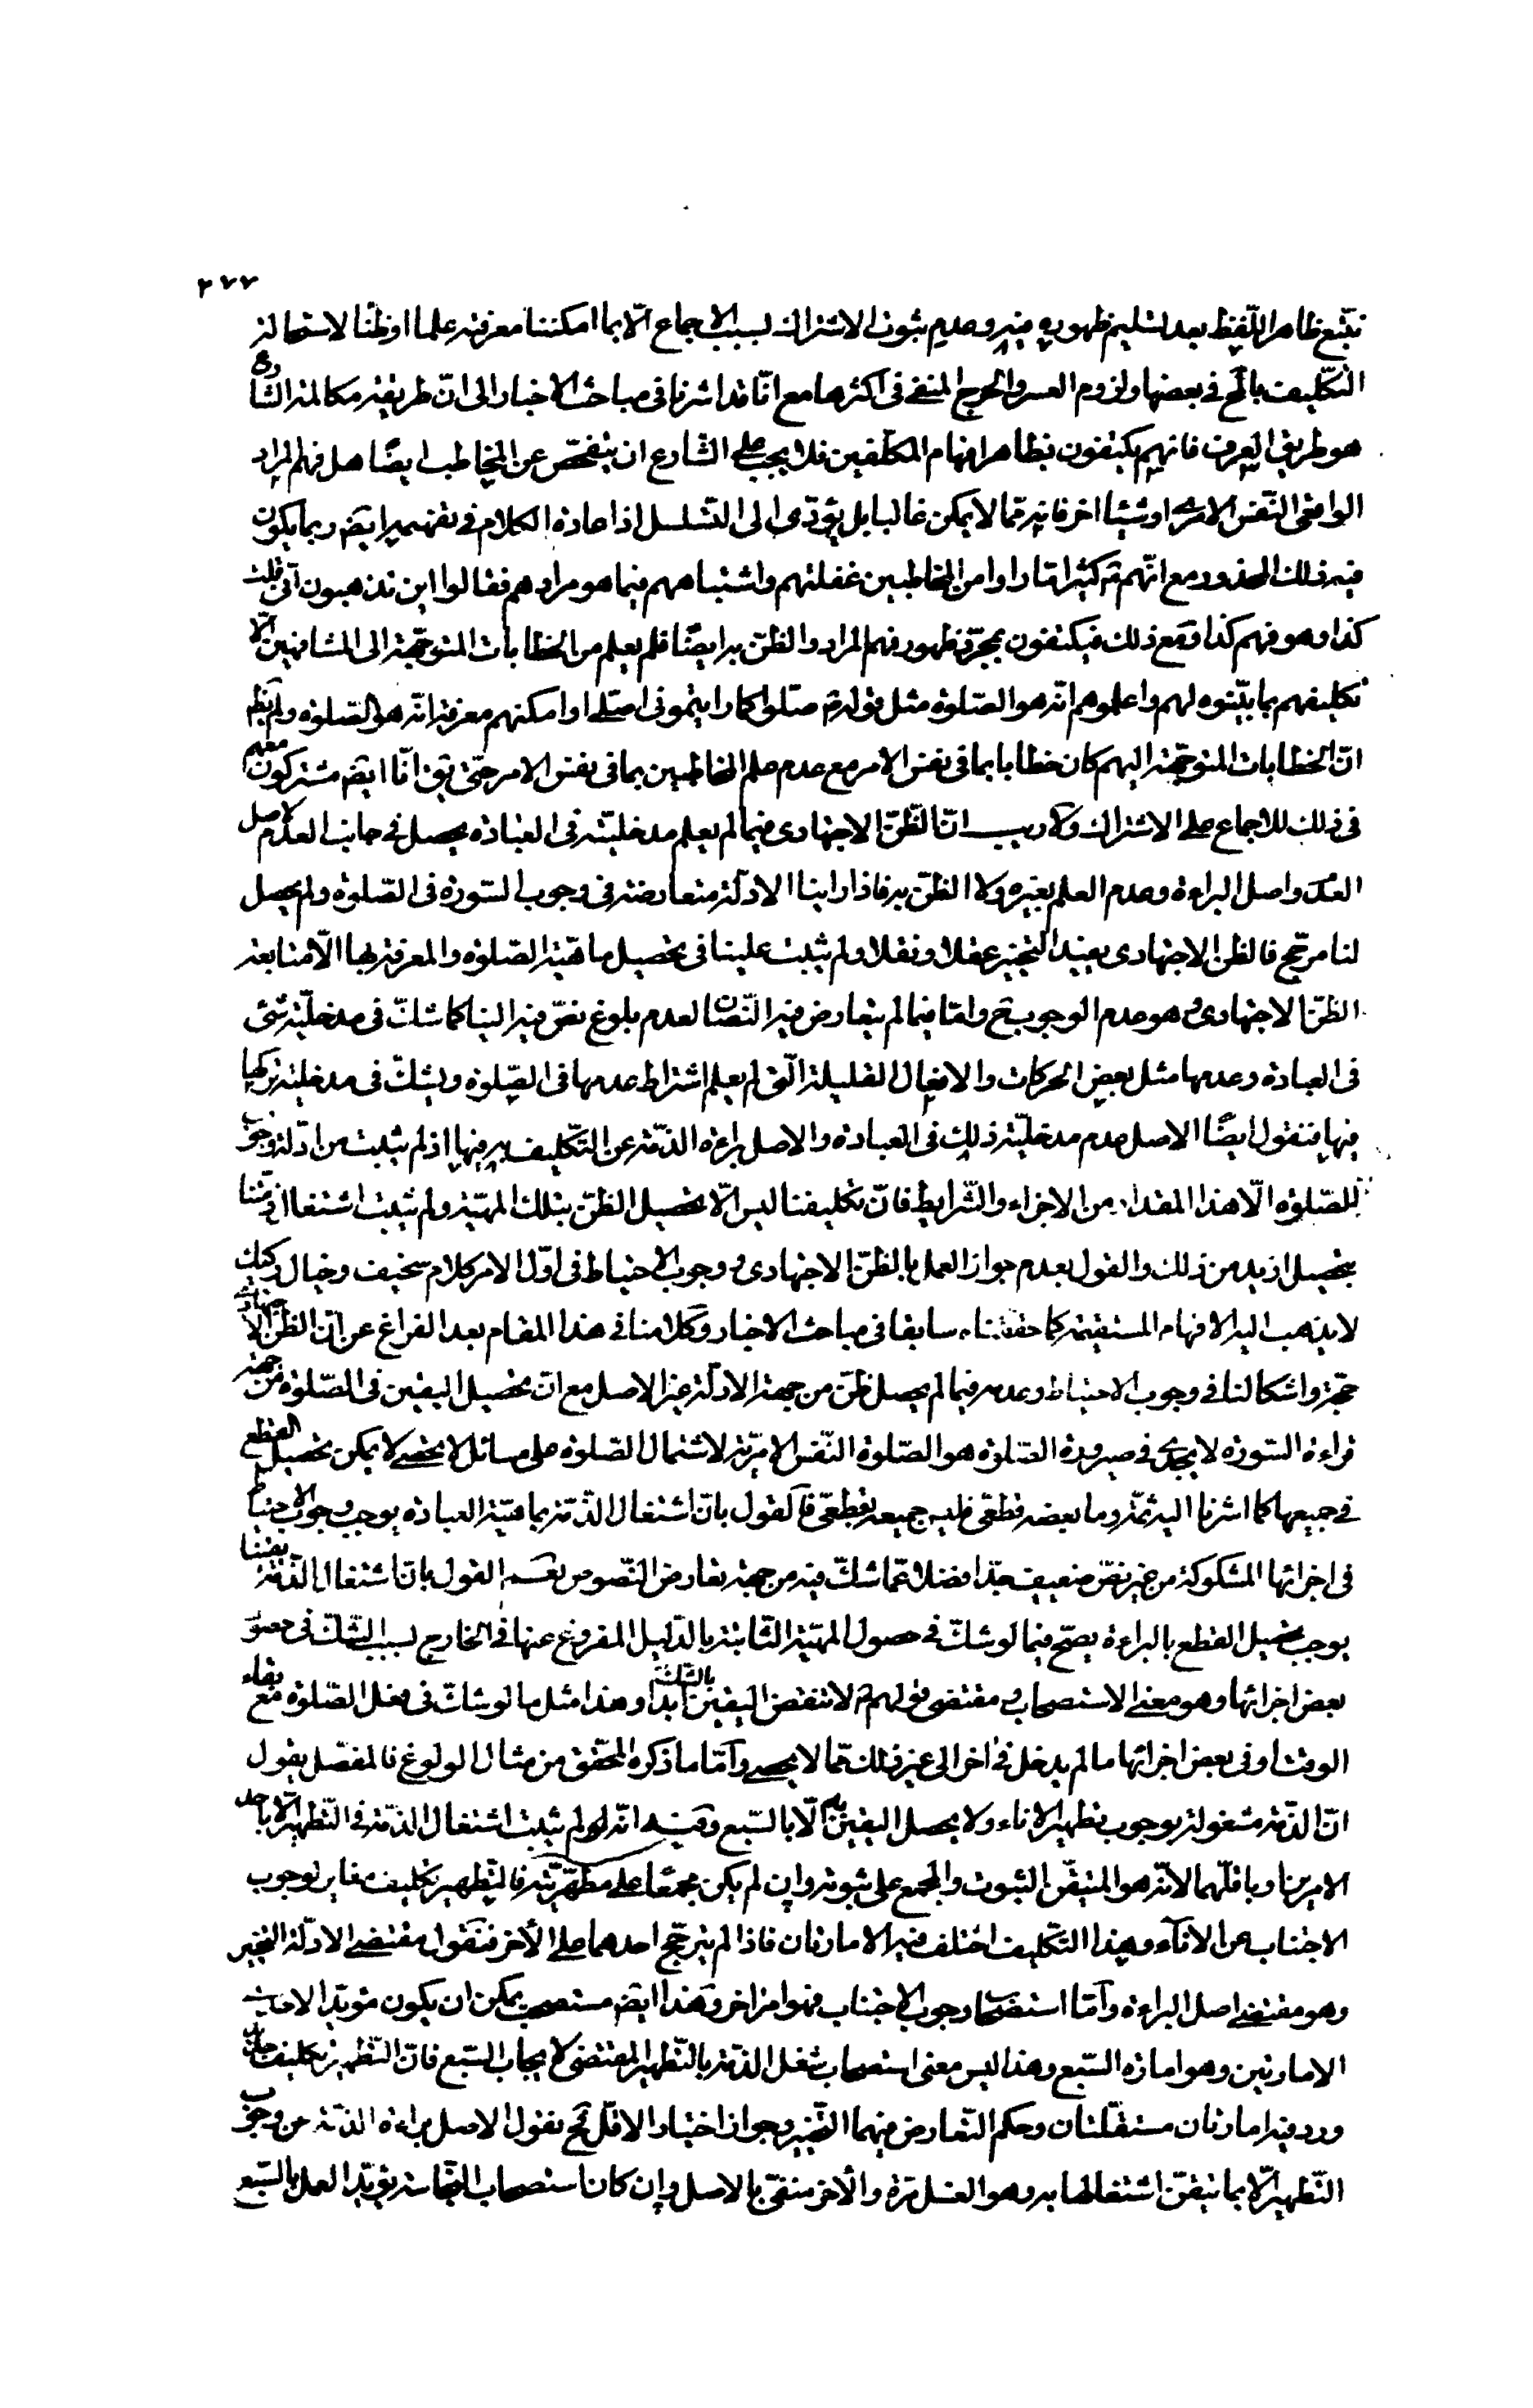 ٢٧٧
نتبع ظاهر اللفظ بعد تسليم ظهوره فيه وعدم ثبوت الاشتراك بسبب الاجماع الّا بما امكننا معرفته علما او ظنّا لاستحالة
التكليف بالمح في بعضها ولزوم العسر والحرج المنفي في اكثرها مع انّا قد اشرنا في مباحث الاخبار الى انّ طريقة مكالمة الشارع
هو طريق العرف فانهم يكتفون بظاهر افهام المكلّفين فلا يجب على الشارع ان يتفحّص عن المخاطب ايضًا هل فهم المراد
الواقعي النّفس الامري او شيئا اخر فانه ممّا لا يمكن غالبا بل يؤدّي الى التسلسل اذ اعادة الكلام في تفهيمه ايضه ربما يكون
فيه ذلك المحذور مع انّهم ع كثيرا ما راوا من المخاطبين غفلتهم واشتباههم فيما هو مرادهم فقالوا اين تذهبون انّي قلت
كذا وهو فهم كذا ومع ذلك فيكتفون بمجرّد ظهور فهم المراد والظنّ به ايضًا فلم يعلم من الخطابات المتوجّهة الى المشافهين الّا
تكليفهم بما بيّنوه لهم واعلموهم انّه هو الصّلوة مثل قوله ص صلّوا كما رايتموني اصلّي او امكنهم معرفة انّه هو الصّلوة ولم يظهر
انّ الخطابات المتوجّهة اليهم كان خطابا بما في نفس الامر مع عدم علم المخاطبين بما في نفس الامر حتّى يق انّا ايضه مشتركون معهم
في ذلك للاجماع على الاشتراك ولا ريب انّ الظّنّ الاجتهادي فيما لم يعلم مدخليّته في العبادة يحصل في جانب العدم لاصل
العدم واصل البراءة وعدم العلم بغيره ولا الظنّ به فاذا راينا الادلّة متعارضة في وجوب السّورة في الصّلوة ولم يحصل
لنا مرجّح فالظن الاجتهادي يفيد التخيير عقلا ونقلا ولم يثبت علينا في تحصيل ماهيّة الصّلوة والمعرفة بها الّا متابعة
الظنّ الاجتهادي وهو عدم الوجوب ح وامّا فيما لم يتعارض فيه النّصّان لعدم بلوغ نصّ فيه الينا كما شكّ في مدخليّة شيء
في العبادة وعدمها مثل بعض الحركات والافعال القليلة الّتي لم يعلم اشتراط عدمها في الصّلوة ويشكّ في مدخلية تركها
فيها فنقول ايضًا الاصل عدم مدخليّة ذلك في العبادة والاصل براءة الذمّة عن التّكليف به فيها اذ لم يثبت من ادلّة وجوب
للصّلوة الّا هذا المقدار من الاجزاء والشّرايط فانّ تكليفنا ليس الّا تحصيل الظنّ بتلك المهيّة ولم يثبت اشتغال ذمّتنا
بتحصيل ازيد من ذلك والقول بعدم جواز العمل بالظنّ الاجتهادي ووجوب الاحتياط في اوّل الامر كلام سخيف وخيال ركيك
لا يذهب اليه الافهام المستقيمة كما حققناه سابقا في مباحث الاخبار وكلامنا في هذا المقام بعد الفراغ عن انّ الظن الاجتهادي
حجّة واشكالنا في وجوب الاحتياط وعدمه فيما لم يحصل ظنّ من جهة الادلّة غير الاصل مع انّ تحصيل اليقين في الصّلوة من جهة
قراءة السّورة لا يجدي في صيرورة الصّلوة هو الصّلوة النّفس الامريّة لاشتمال الصّلوة على مسائل لا تحصى لا يمكن تحصيل القطع
في جميعها كما اشرنا اليه ثمّة وما بعضه قطعيّ فليس جميعه بقطعيّ فالقول بانّ اشتغال الذّمّة بماهيّة العبادة يوجب وجوب الاحتياط
في اجزائها المشكوكة من غير نصّ ضعيف جدّا فضلا عمّا شكّ فيه من جهة تعارض النّصوص نعم القول بانّ اشتغال الذّمّة يقينا
يوجب تحصيل القطع بالبراءة يصحّ فيما لو شكّ في حصول المهيّة الثّابتة بالدّليل المفروغ عنها في الخارج بسبب الشّكّ في حصول
بعض اجزائها وهو معنى الاستصحاب ومقتضى قولهم ع لا تنقض اليقين بالشّكّ ابدا وهذا مثل ما لو شكّ في فعل الصّلوة مع بقاء
الوقت او في بعض اجزائها ما لم يدخل في اخر الى غير ذلك ممّا لا يحصى وامّا ما ذكره المحقّق من مثال الولوغ فالمفصّل يقول
انّ الذّمّة مشغولة بوجوب تطهير الاناء ولا يحصل اليقين به الّا بالسّبع وفيه انّه لو لم يثبت اشتغال الذمّة في التّطهير الّا باحد
الامرين او باقلّهما لانّه هو المتيقّن الثبوت والمجمع على ثبوته وان لم يكن مجمعًا على مطهّريّته فالتّطهير تكليف مغاير لوجوب
الاجتناب عن الاناء وهذا التّكليف اختلف فيه الامارتان فاذا لم يترجّح احدهما على الأخر فنقول مقتضى الادلّة التخيير
وهو مقتضى اصل البراءة وامّا استصحاب وجوب الاجتناب فهو امر اخر وهذا ايضه مستصحب يمكن ان يكون مؤيّدا لاحدى
الامارتين وهو امارة السّبع وهذا ليس معنى استصحاب شغل الذمّة بالتّطهير المقتضي لايجاب السّبع فانّ التّطهير تكليف جديد
ورد فيه امارتان مستقلّتان وحكم التّعارض فيهما التّخيير وجواز اختيار الاقلّ فح نقول الاصل براءة الذمّة عن وجوب
التّطهير الّا بما نتيقّن اشتغالها به وهو الغسل مرّة والأخر منفيّ بالاصل وإن كان استصحاب النّجاسة يؤيّد العمل بالسّبع